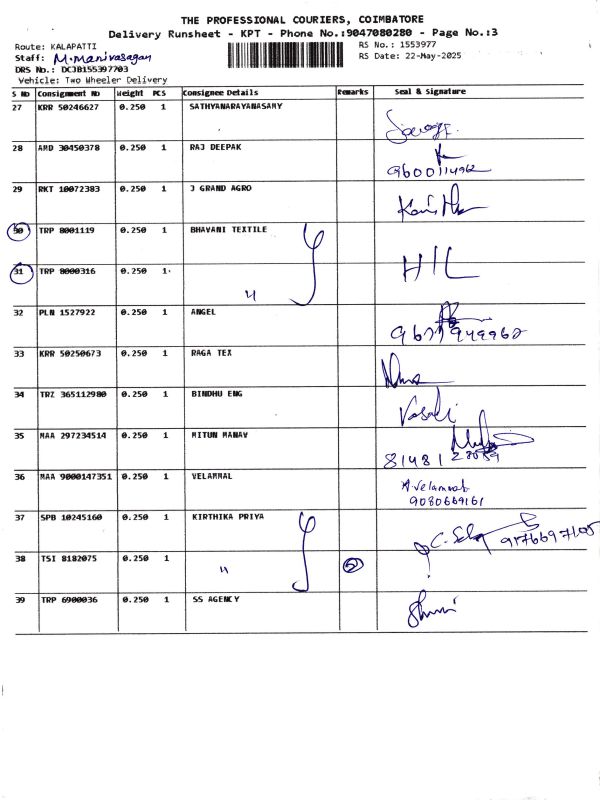 THE PROFESSIONAL COURIERS, COIMBATORE
Delivery Runsheet - KPT - Phone No.:9047080280 - Page No.:3
Route: KALAPATTI
RS No.: 1553977
Staff: M.manivasagan
RS Date: 22-May-2025
DRS No.: DCJB155397703
Vehicle: Two Wheeler Delivery
S No Consignment No Weight PCS Consignee Details Remarks Seal & Signature
27 KRR 50246627 0.250 1 SATHYANARAYANASAMY
28 AMD 30450378 0.250 1 RAJ DEEPAK
9600114962
29 RKT 10072383 0.250 1 J GRAND AGRO
30 TRP 8001119 0.250 1 BHAVANI TEXTILE
31 TRP 8000316 0.250 1 " HIL
32 PLN 1527922 0.250 1 ANGEL
9677949962
33 KRR 50250673 0.250 1 RAGA TEX
34 TRZ 365112980 0.250 1 BINDHU ENG
35 MAA 297234514 0.250 1 MITUN MANAV
36 MAA 9000147351 0.250 1 VELAMMAL
9080669161
37 SPB 10245160 0.250 1 KIRTHIKA PRIYA
38 TSI 8182075 0.250 1 " 5
39 TRP 6900036 0.250 1 SS AGENCY